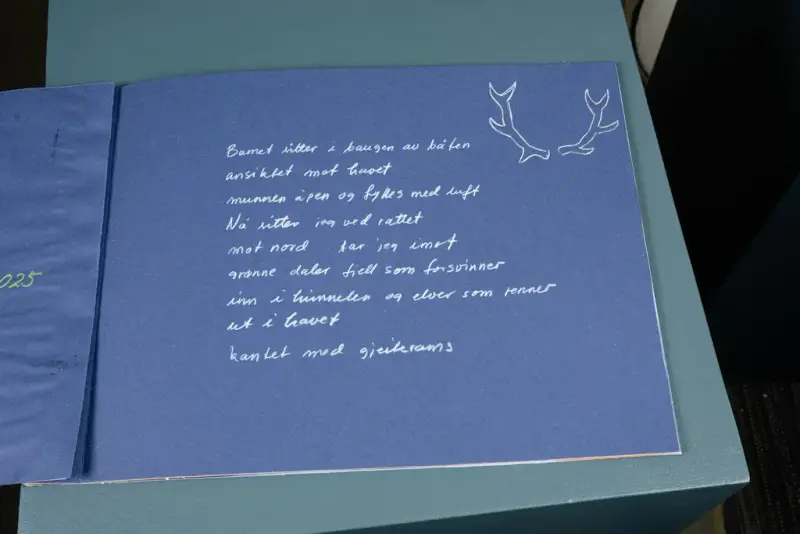 025
Barnet sitter i baugen av båten
ansiktet mot havet
munnen åpen og fylles med luft
Nå sitter jeg ved rattet
mot nord tar jeg imot
grønne daler fjell som forsvinner
inn i himmelen og elver som renner
ut i havet
kantet med gjeiterams